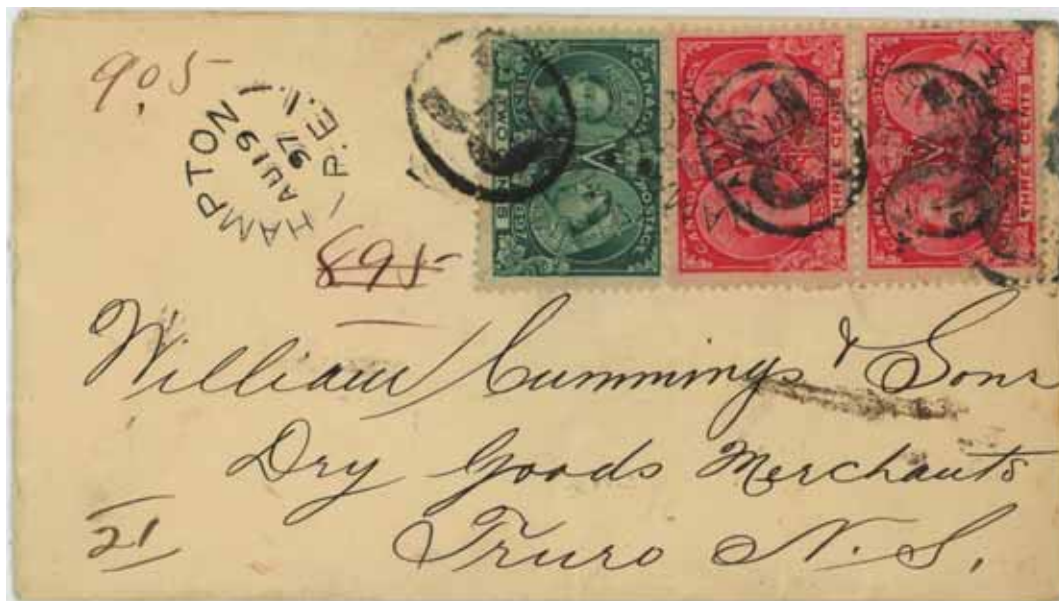 905
HAMPTON P.E.I.
AU 19
97
CANADA POSTAGE
TWO CENTS
CANADA POSTAGE
THREE CENTS
CANADA POSTAGE
THREE CENTS
R
895
William Cummings & Sons
Dry Goods Merchants
Truro N.S.
21